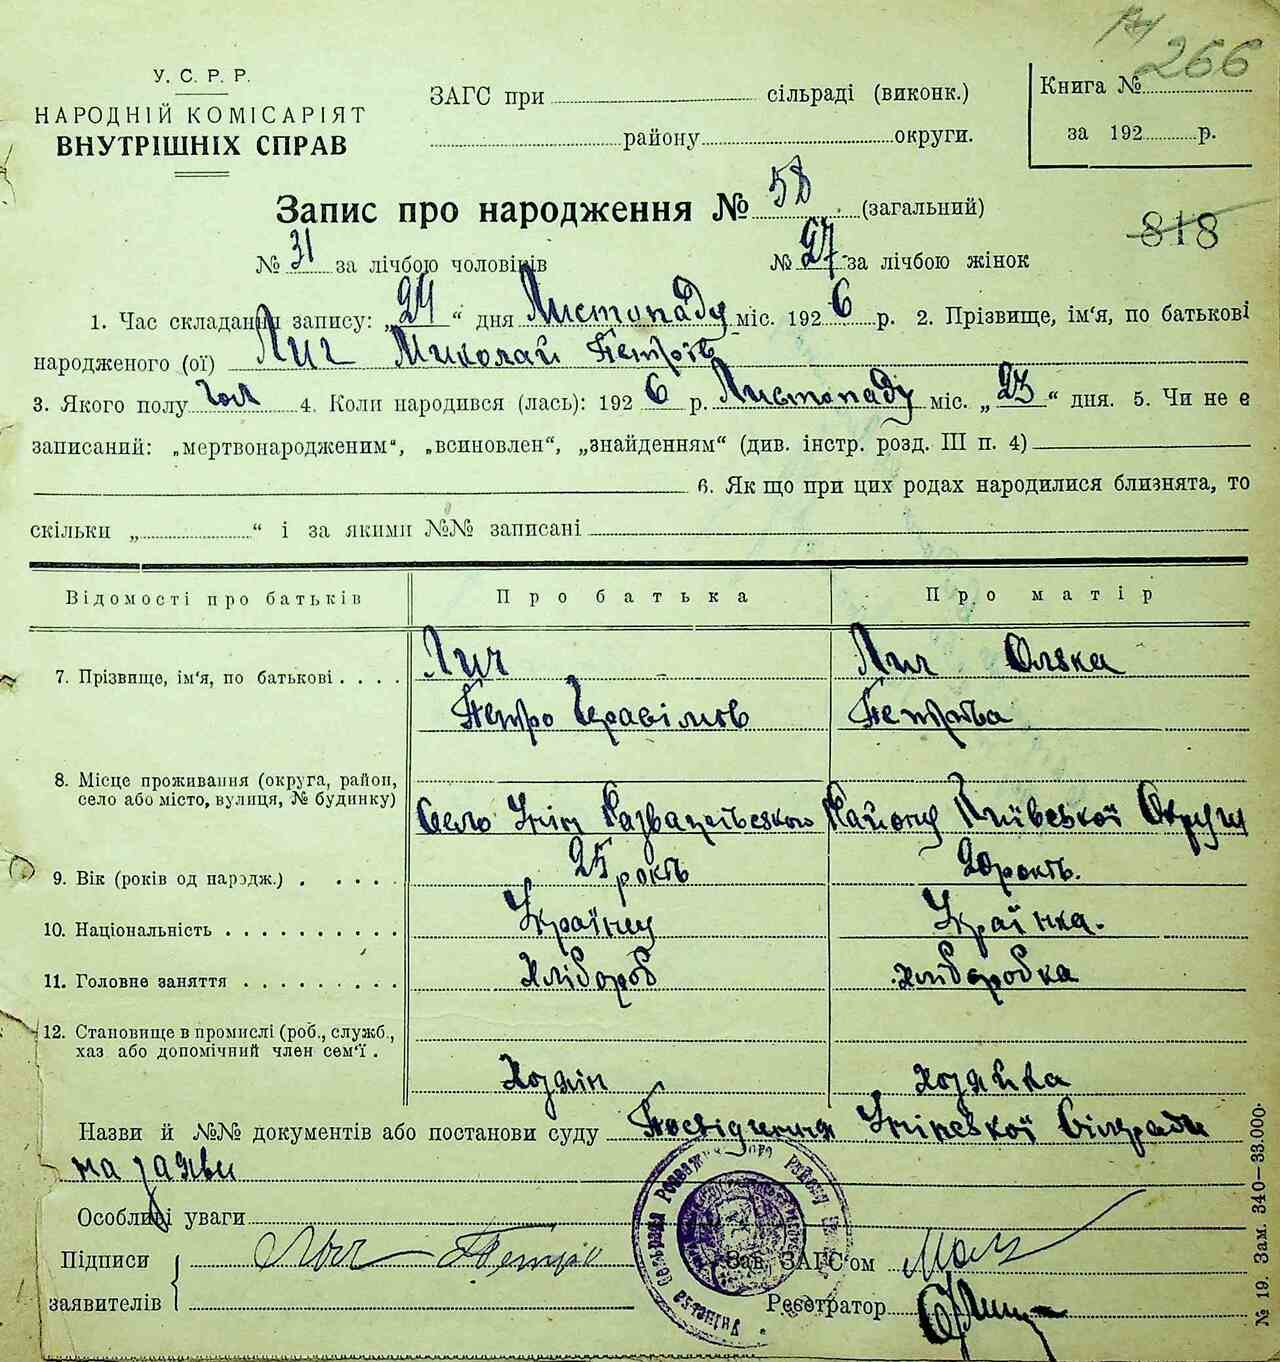 266
У. С. Р. Р.
НАРОДНІЙ КОМІСАРІЯТ
ВНУТРІШНІХ СПРАВ
ЗАГС при сільраді (виконк.)
району округи.
Книга №
за 192 р.
Запис про народження № 58 (загальний)
818
№ 31 за лічбою чоловіків № 27 за лічбою жінок
1. Час складання запису: „24“ дня Листопаду міс. 1926 р. 2. Прізвище, ім'я, по батькові
народженого (ої) Лич Миколай Петров
3. Якого полу чол 4. Коли народився (лась): 1926 р. Листопаду міс. „23“ дня. 5. Чи не є
записаний: „мертвонародженим“, „всиновлен“, „знайденням“ (див. інстр. розд. III п. 4)
6. Як що при цих родах народилися близнята, то
скільки „ “ і за якими №№ записані
Відомості про батьків Про батька Про матір
7. Прізвище, ім'я, по батькові Лич Лич Олька
Петро Петрова
8. Місце проживання (округа, район,
село або місто, вулиця, № будинку)
Село Унін Району Київської Округи
9. Вік (років од нарэдж.) 25 рокть 20 рокть.
10. Національність Українец Українка.
11. Головне заняття Хлібороб Хліборобка
12. Становище в промислі (роб., служб.,
хаз або допомічний член сем'ї.
Хозяїн Хозяйка
Назви й №№ документів або постанови суду Посвідчення Унінської Сільради
на заяви
Особливі уваги
Підписи Лич Петро Зав. ЗАГС'ом
заявителів Реєстратор
№ 19. Зам. 340—33.000.